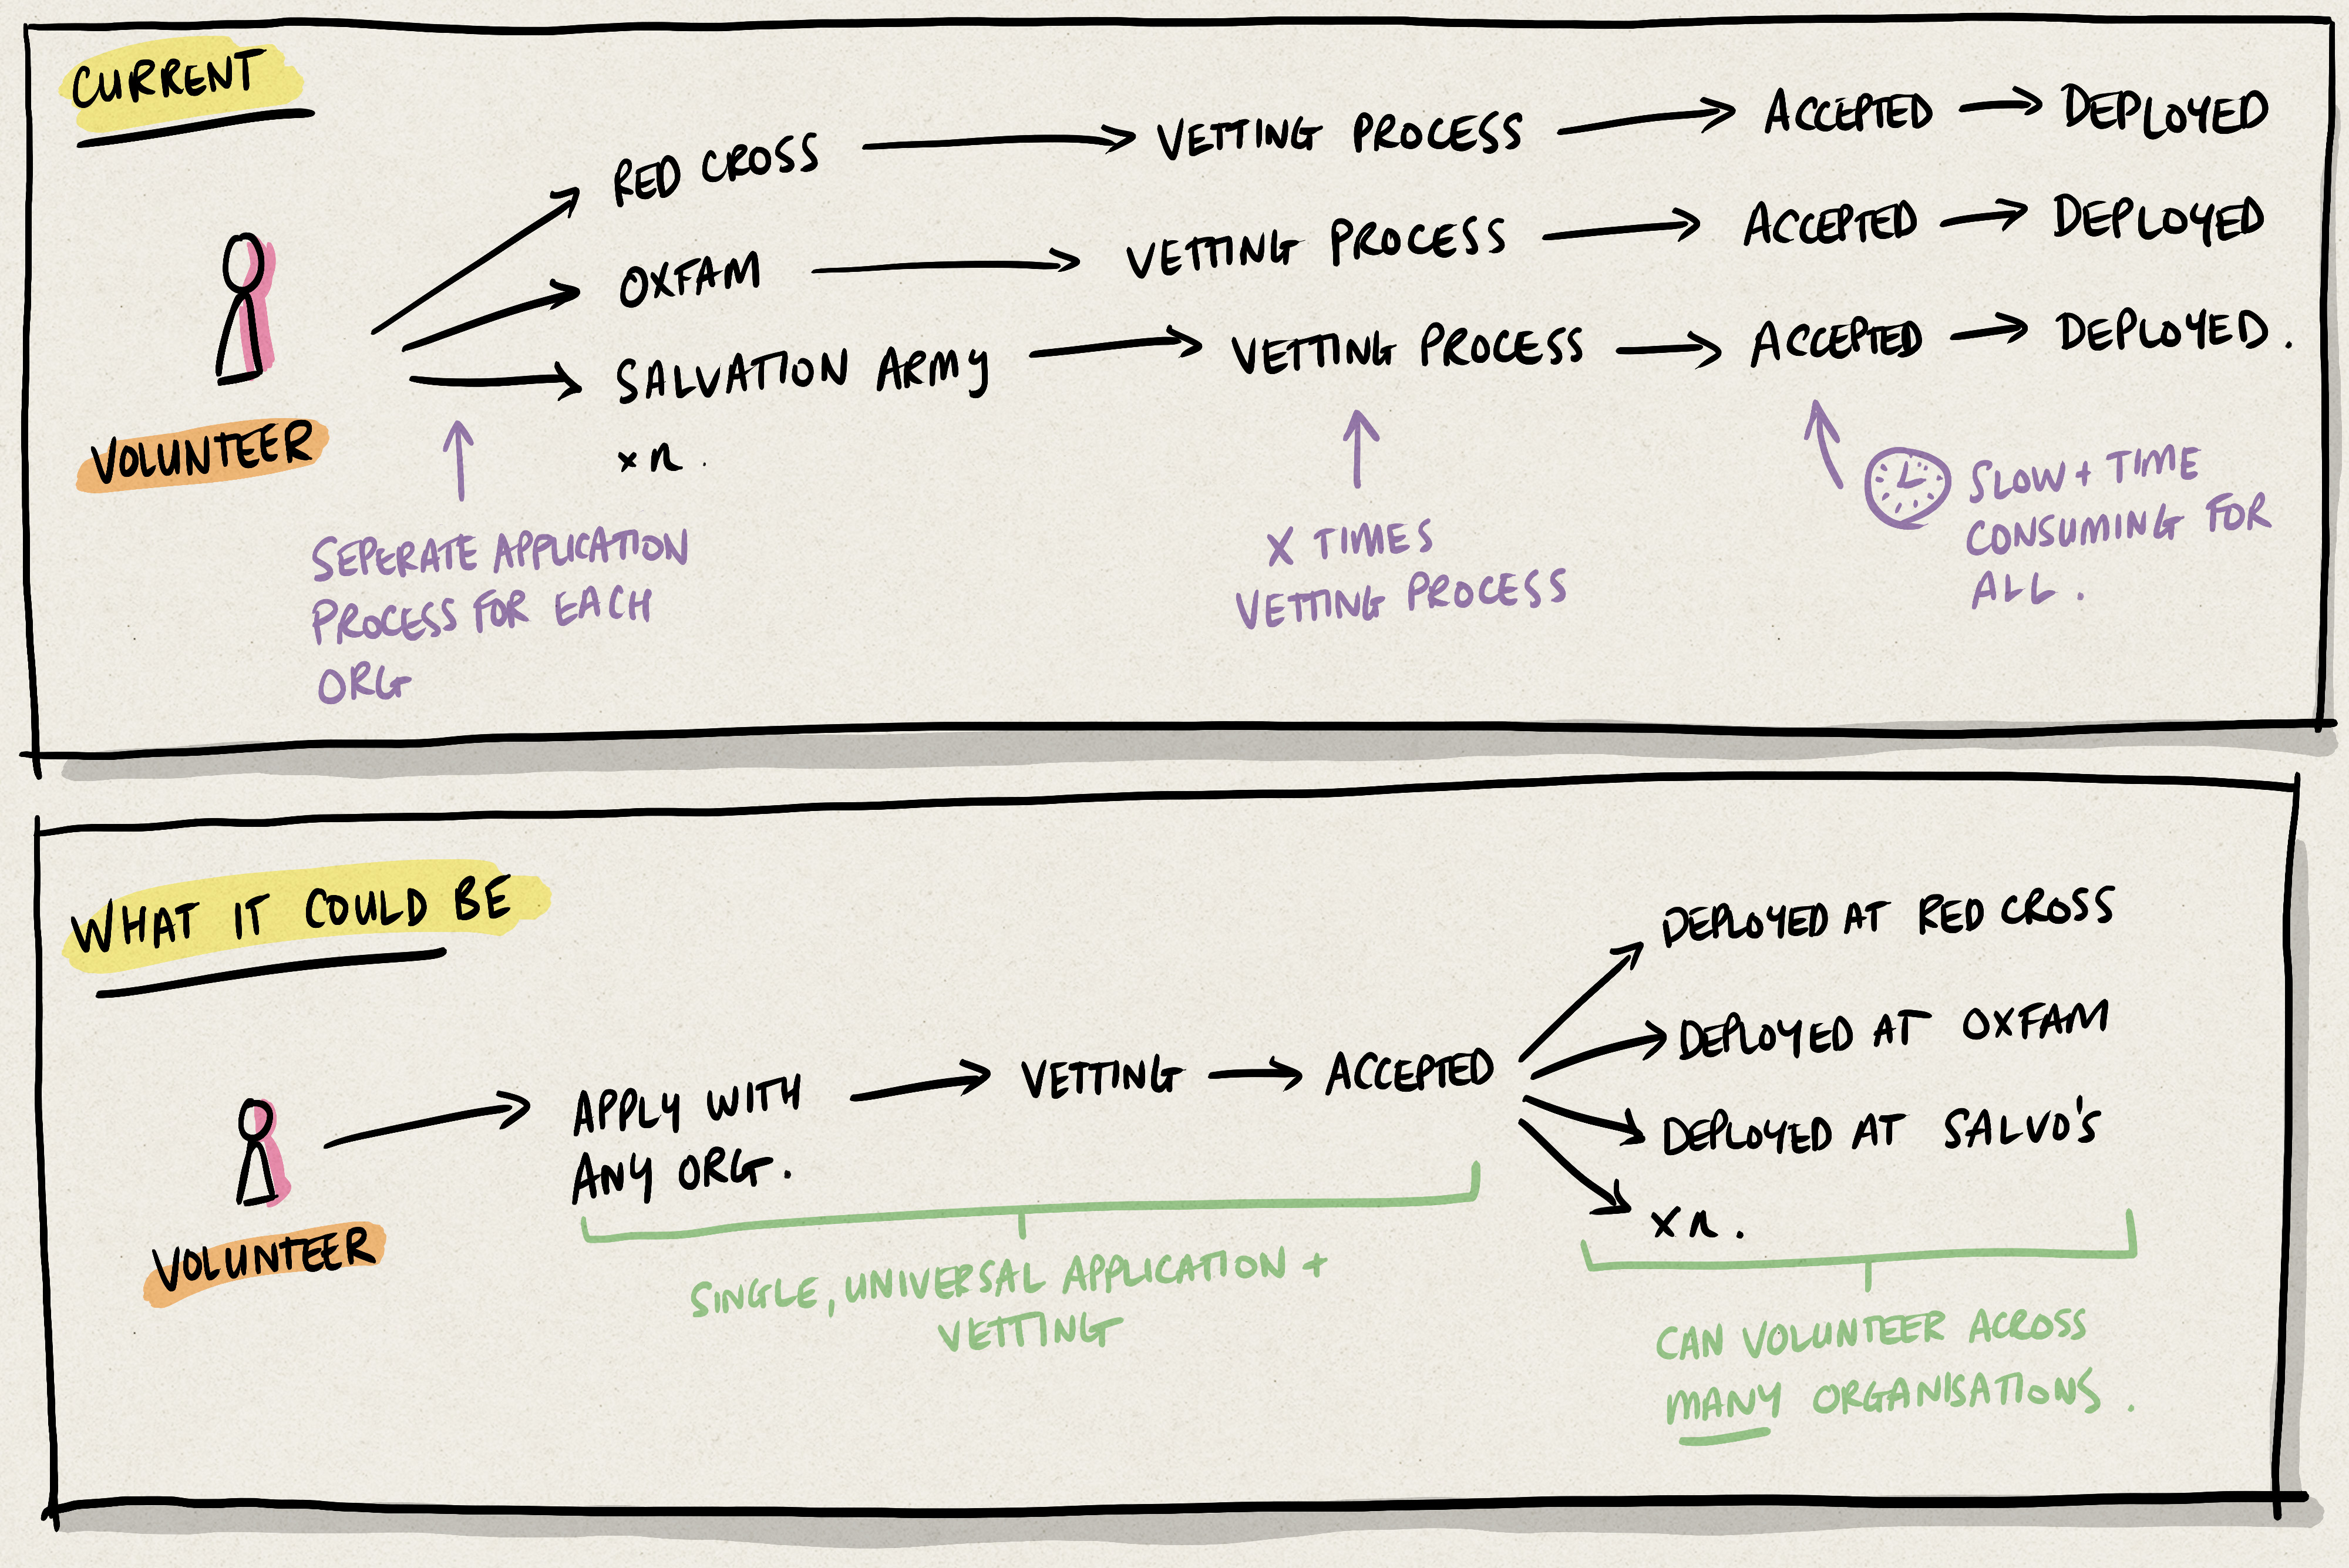 CURRENT
RED CROSS VETTING PROCESS ACCEPTED DEPLOYED
OXFAM VETTING PROCESS ACCEPTED DEPLOYED
SALVATION ARMY VETTING PROCESS ACCEPTED DEPLOYED.
x n.
VOLUNTEER
SEPERATE APPLICATION
PROCESS FOR EACH
ORG
X TIMES
VETTING PROCESS
SLOW + TIME
CONSUMING FOR
ALL.
WHAT IT COULD BE
VOLUNTEER
APPLY WITH
ANY ORG.
VETTING
ACCEPTED
DEPLOYED AT RED CROSS
DEPLOYED AT OXFAM
DEPLOYED AT SALVO'S
x n.
SINGLE, UNIVERSAL APPLICATION +
VETTING
CAN VOLUNTEER ACROSS
MANY ORGANISATIONS.